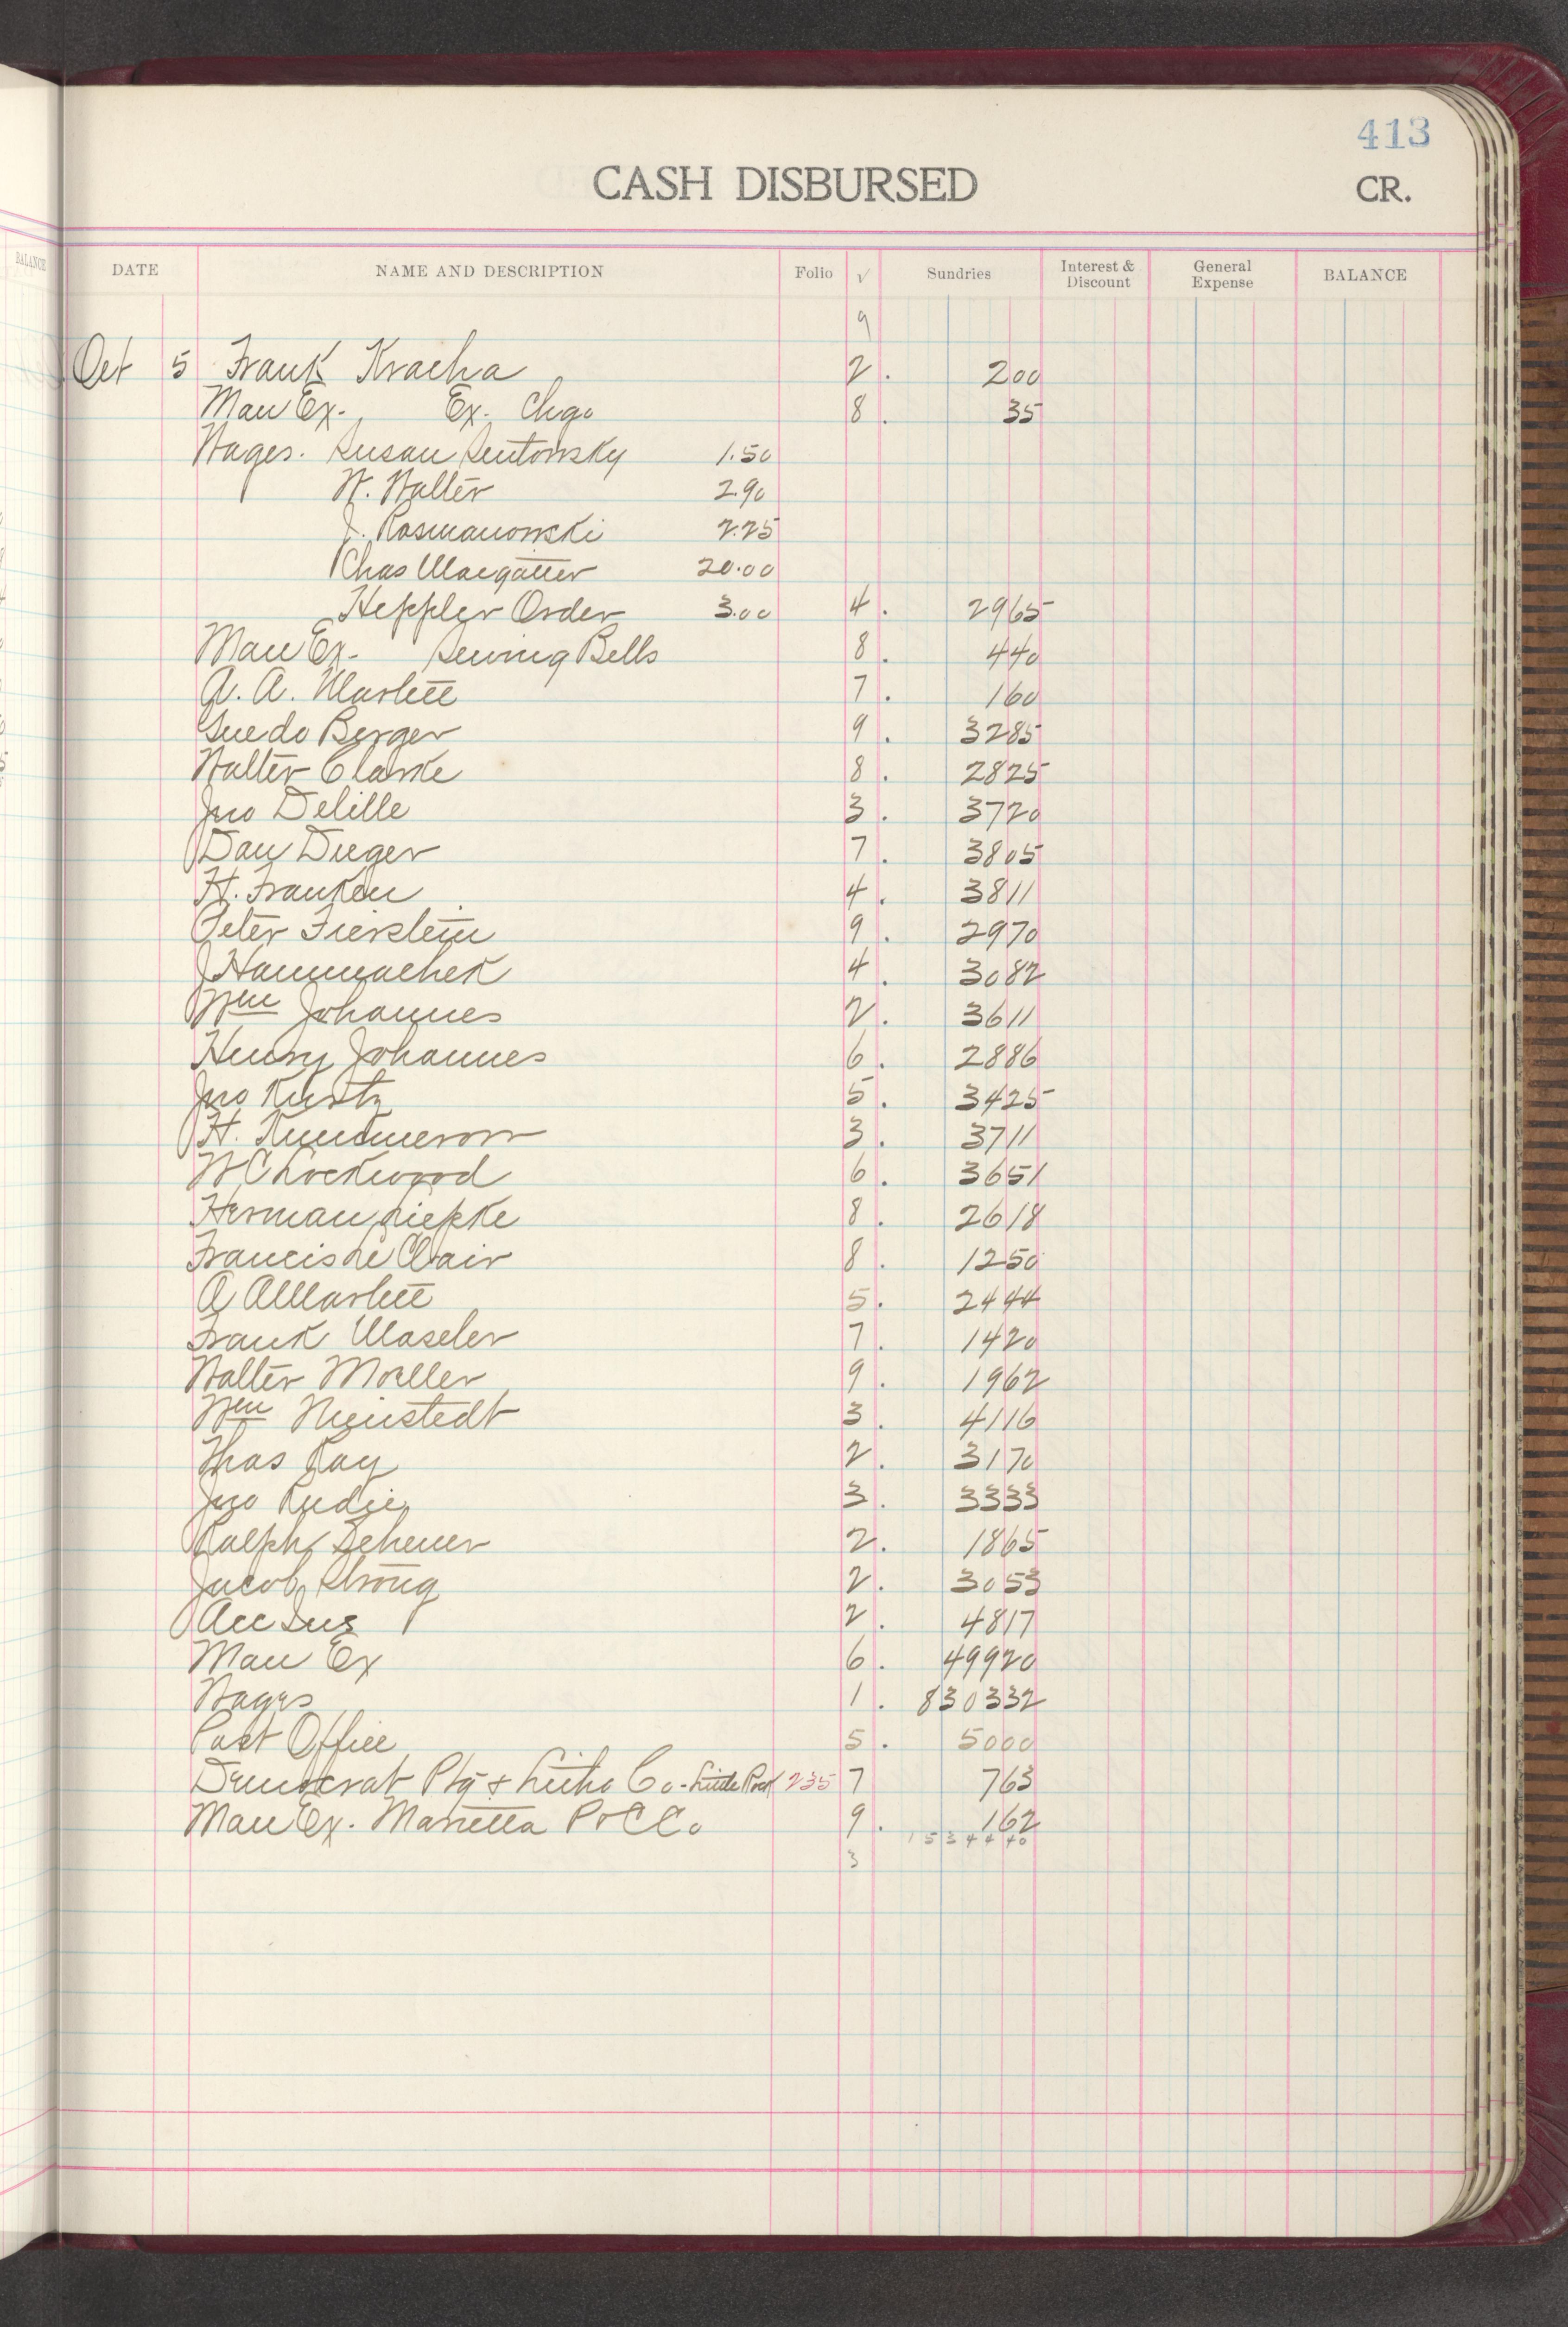 413
CASH DISBURSED CR.
BALANCE
DATE NAME AND DESCRIPTION Folio √ Sundries Interest & Discount General Expense BALANCE
9
Oct 5 Frank Kracha 2. 200
Man Ex. Ex. Chgo 8. 35
Wages. Susan Sentowsky 1.50
W. Walter 2.90
J. Rosmanowski 2.25
Chas Maegatter 20.00
Heppler Order 3.00 4. 2965
Man Ex. Sewing Bells 8. 440
A. A. Marlett 7. 160
Guedo Berger 9. 3285
Walter Clarke 8. 2825
Jno Delille 3. 3720
Dan Dueger 7. 3805
H. Franken 4. 3811
Peter Fierstein 9. 2970
J Hammachek 4. 3082
Wm Johannes 2. 3611
Henry Johannes 6. 2886
Jno Kurtz 5. 3425
H. Kummerow 3. 3711
W C Lockwood 6. 3651
Herman Liepke 8. 2618
Francis Le Clair 8. 1250
A A Marlett 5. 2444
Frank Maseler 7. 1420
Walter Moeller 9. 1962
Wm Nienstedt 3. 4116
Thos Ray 2. 3170
Jno Rudie 3. 3333
Ralph Scheuer 2. 1865
Jacob Strong 2. 3053
Acc Ins 2. 4817
Man Ex 6. 49920
Wages 1. 830332
Post Office 5. 5000
Democrat Ptg & Litho Co - Little Rock 235 7 763
Man Ex. Marietta P & C Co 9. 162
1534440
3